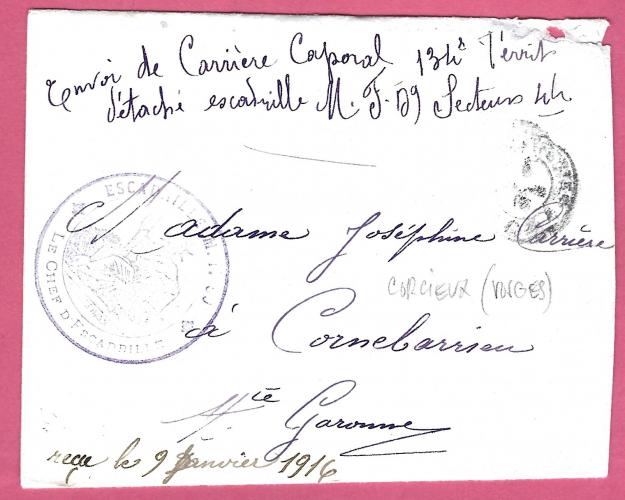 Envoi de Carrière Caporal 134e Territ
détaché escadrille M. F. 29 Secteurs 44
ESCADRILLE M.
LE CHEF D'ESCADRILLE
Madame Joséphine Carrière
CORCIEUX (VOSGES)
à Cornebarrieu
Hte Garonne
reçue le 9 Janvier 1916